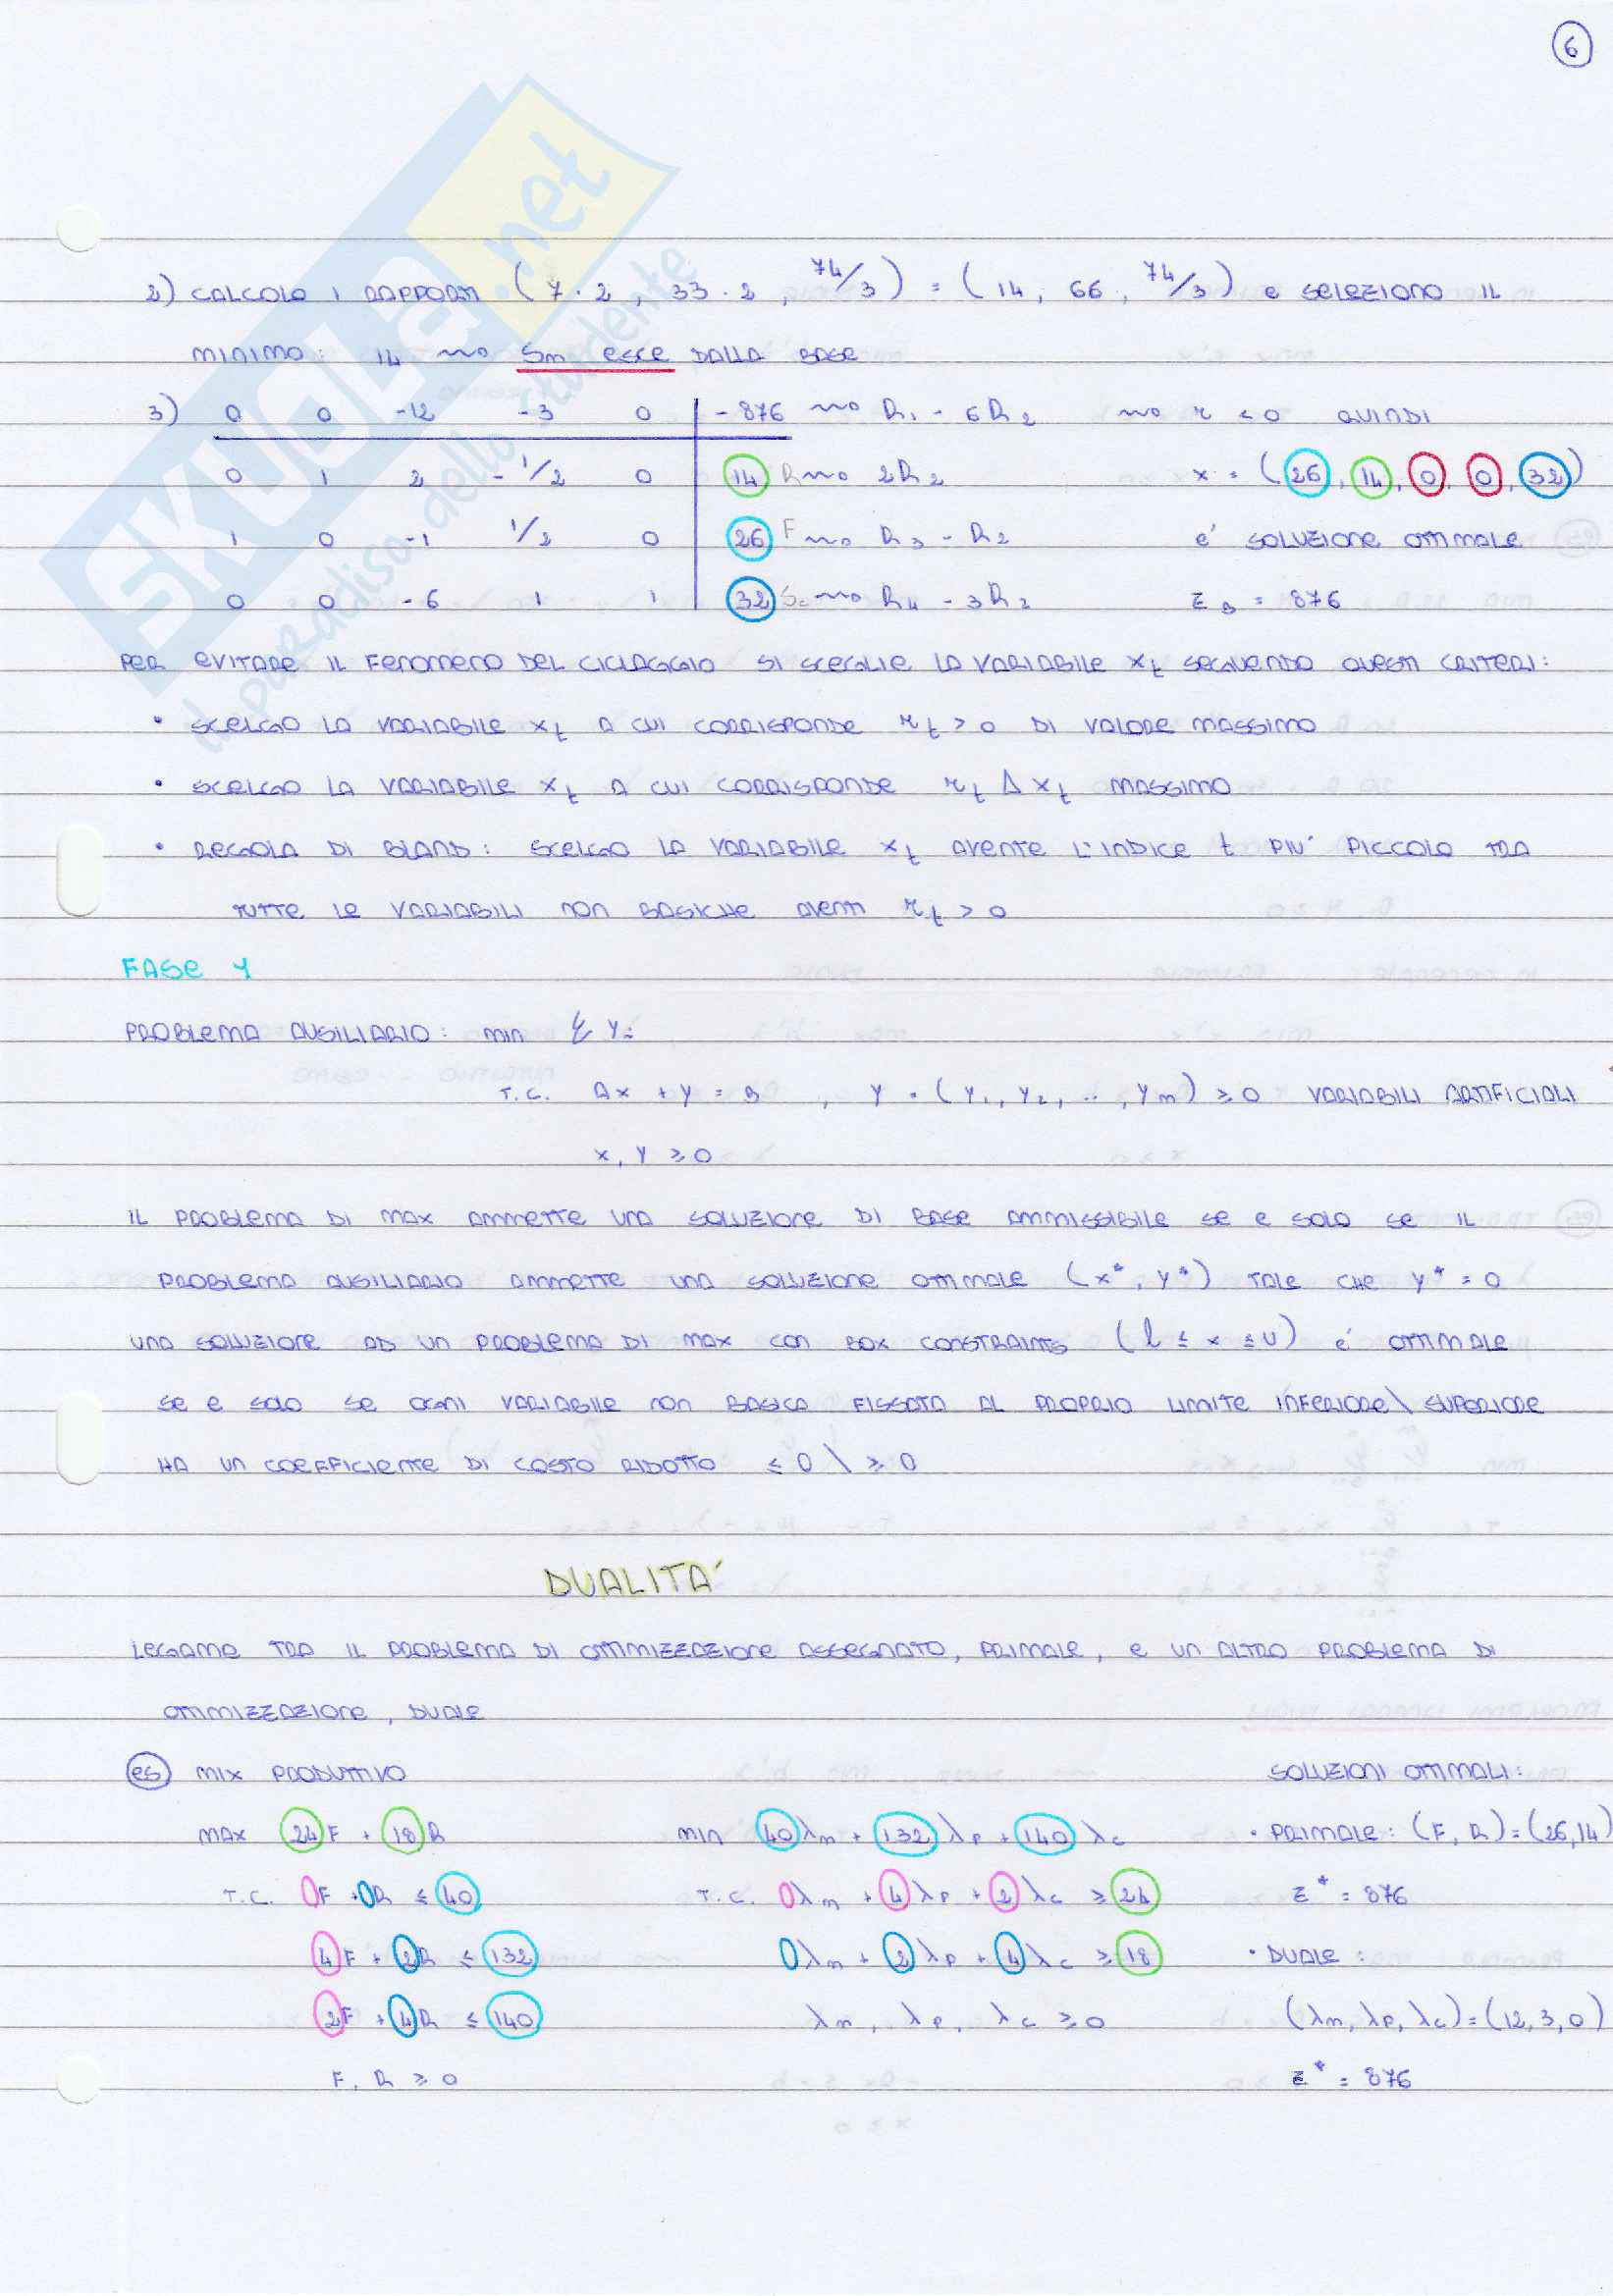 6
SKUOLA.net
il paradiso dello studente
2) CALCOLO I RAPPORTI (7·2, 33·2, 74/3) = (14, 66, 74/3) E SELEZIONO IL
MINIMO: 14 ⇝ Sm ESCE DALLA BASE
3) 0 0 -12 -3 0 | -876 ⇝ R1 - 6R2 ⇝ r < 0 QUINDI
0 1 2 -1/2 0 | 14 R ⇝ 2R2 x = (26, 14, 0, 0, 32)
1 0 -1 1/2 0 | 26 F ⇝ R3 - R2 E' SOLUZIONE OTTIMALE
0 0 -6 1 1 | 32 Sc ⇝ R4 - 3R2 ZB = 876
PER EVITARE IL FENOMENO DEL CICLAGGIO SI SCEGLIE LA VARIABILE xt SEGUENDO QUESTI CRITERI:
• SCELGO LA VARIABILE xt A CUI CORRISPONDE rt > 0 DI VALORE MASSIMO
• SCELGO LA VARIABILE xt A CUI CORRISPONDE rt Δxt MASSIMO
• REGOLA DI BLAND: SCELGO LA VARIABILE xt AVENTE L'INDICE t PIU' PICCOLO TRA
TUTTE LE VARIABILI NON BASICHE AVENTI rt > 0
FASE 1
PROBLEMA AUSILIARIO: MIN Σ yi
T.C. Ax + y = B , y = (y1, y2, .., ym) ≥ 0 VARIABILI ARTIFICIALI
x, y ≥ 0
IL PROBLEMA DI MAX AMMETTE UNA SOLUZIONE DI BASE AMMISSIBILE SE E SOLO SE IL
PROBLEMA AUSILIARIO AMMETTE UNA SOLUZIONE OTTIMALE (x*, y*) TALE CHE y* = 0
UNA SOLUZIONE AD UN PROBLEMA DI MAX CON BOX CONSTRAINTS (l ≤ x ≤ U) E' OTTIMALE
SE E SOLO SE OGNI VARIABILE NON BASICA FISSATA AL PROPRIO LIMITE INFERIORE\ SUPERIORE
HA UN COEFFICIENTE DI COSTO RIDOTTO ≤ 0 \ ≥ 0
DUALITA'
LEGAME TRA IL PROBLEMA DI OTTIMIZZAZIONE ASSEGNATO, PRIMALE, E UN ALTRO PROBLEMA DI
OTTIMIZZAZIONE, DUALE
ES MIX PRODUTTIVO SOLUZIONI OTTIMALI:
MAX 24F + 18R MIN 40λm + 132λp + 140λc • PRIMALE: (F, R) = (26,14)
T.C. 1F + 1R ≤ 40 T.C. 1λm + 4λp + 2λc ≥ 24 Z* = 876
4F + 2R ≤ 132 1λm + 2λp + 4λc ≥ 18 • DUALE:
2F + 4R ≤ 140 λm, λp, λc ≥ 0 (λm, λp, λc) = (12, 3, 0)
F, R ≥ 0 Z* = 876